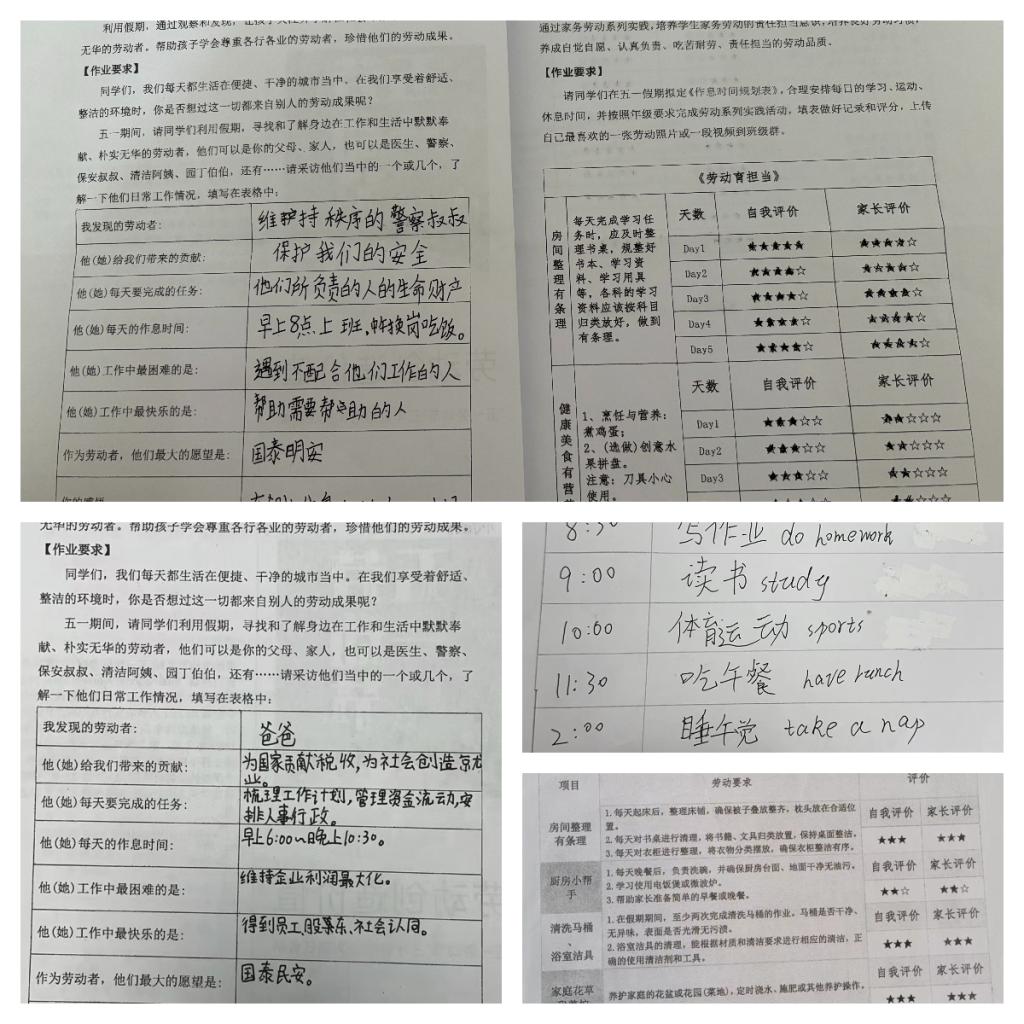 利用假期，通过观察和发现，让孩子
无华的劳动者。帮助孩子学会尊重各行各业的劳动者，珍惜他们的劳动成果。
【作业要求】
同学们，我们每天都生活在便捷、干净的城市当中。在我们享受着舒适、
整洁的环境时，你是否想过这一切都来自别人的劳动成果呢？
五一期间，请同学们利用假期，寻找和了解身边在工作和生活中默默奉
献、朴实无华的劳动者，他们可以是你的父母、家人，也可以是医生、警察、
保安叔叔、清洁阿姨、园丁伯伯，还有……请采访他们当中的一个或几个，了
解一下他们日常工作情况，填写在表格中：
我发现的劳动者： 维护持秩序的警察叔叔
他(她)给我们带来的贡献： 保护我们的安全
他(她)每天要完成的任务： 他们所负责的人的生命财产
他(她)每天的作息时间： 早上8点上班，换岗吃饭。
他(她)工作中最困难的是： 遇到不配合他们工作的人
他(她)工作中最快乐的是： 帮助需要帮助的人
作为劳动者，他们最大的愿望是： 国泰明安
通过家务劳动系列实践，培养学生家务劳动的责任担当意识，培养良好劳动习惯，
养成自觉自愿、认真负责、吃苦耐劳、责任担当的劳动品质。
【作业要求】
请同学们在五一假期拟定《作息时间规划表》，合理安排每日的学习、运动、
休息时间，并按照年级要求完成劳动系列实践活动，填表做好记录和评分，上传
自己最喜欢的一张劳动照片或一段视频到班级群。
《劳动育担当》
房间整理有条理
每天完成学习任
务时，应及时整
理书桌，规整好
书本、学习资
料、学习用具
等，各科的学习
资料应该按科目
归类放好，做到
有条理。
天数 自我评价 家长评价
Day1 ★★★★★ ★★★★☆
Day2 ★★★★☆ ★★★★☆
Day3 ★★★★☆ ★★★★☆
Day4 ★★★★☆ ★★★★☆
Day5 ★★★★☆ ★★★★☆
健康美食有营养
1、烹饪与营养：
煮鸡蛋；
2、(选做)创意水
果拼盘。
注意：刀具小心
使用。
天数 自我评价 家长评价
Day1 ★★★☆☆ ★★☆☆☆
Day2 ★★★☆☆ ★★☆☆☆
Day3 ★★★☆☆ ★★☆☆☆
无华的劳动者。帮助孩子学会尊重各行各业的劳动者，珍惜他们的劳动成果。
【作业要求】
同学们，我们每天都生活在便捷、干净的城市当中。在我们享受着舒适、
整洁的环境时，你是否想过这一切都来自别人的劳动成果呢？
五一期间，请同学们利用假期，寻找和了解身边在工作和生活中默默奉
献、朴实无华的劳动者，他们可以是你的父母、家人，也可以是医生、警察、
保安叔叔、清洁阿姨、园丁伯伯，还有……请采访他们当中的一个或几个，了
解一下他们日常工作情况，填写在表格中：
我发现的劳动者： 爸爸
他(她)给我们带来的贡献： 为国家贡献税收，为社会创造就
业。
他(她)每天要完成的任务： 梳理工作计划，管理资金流动，安
排人事行政。
他(她)每天的作息时间： 早上6:00~晚上10:30。
他(她)工作中最困难的是： 维持企业利润最大化。
他(她)工作中最快乐的是： 得到员工、股东、社会认同。
作为劳动者，他们最大的愿望是： 国泰民安。
8:30 写作业 do homework
9:00 读书 study
10:00 体育运动 sports
11:30 吃午餐 have lunch
2:00 睡午觉 take a nap
项目 劳动要求 评价
房间整理
有条理
1.每天起床后，整理床铺，确保被子叠放整齐，枕头放在合适位
置。
2.每天对书桌进行清理，将书籍、文具归类放置，保持桌面整洁。
3.每天对衣柜进行整理，将衣物分类摆放，确保衣柜整洁有序。
自我评价 家长评价
★★★ ★★★
厨房小帮
手
1.每天晚餐后，负责洗碗，并确保厨房台面、地面干净无油污。
2.学习使用电饭煲或微波炉。
3.帮助家长准备简单的早餐或晚餐。
自我评价 家长评价
★★☆ ★★☆
清洗马桶
、
浴室洁具
1.在假期期间，至少两次完成清洗马桶的作业。马桶是否干净、
无异味，表面是否光滑无污渍。
2.浴室洁具的清理，能根据材质和清洁要求进行相应的清洁，正
确的使用清洁剂和工具。
自我评价 家长评价
★★★ ★★★
家庭花草
养护家庭的花盆或花园(菜地)，定时浇水、施肥或其他养护操作，
自我评价 家长评价
★★★ ★★★